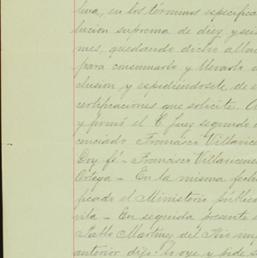 tiva, en los términos especifica
lucion suprema de diez y seis
mes, quedando dicho
para consumarlo y llevarlo
clusion y espidiendosele de
certificaciones que solicite.
y firmó el C. Juez segundo
cenciado Francisco Villavicen
Doy fé - Francisco Villavicen
Ortega - En la misma fecha
ficado el Ministerio públic
rita - En seguida presente
Pablo Martinez del Rio
anterior dijo: lo oye y pide